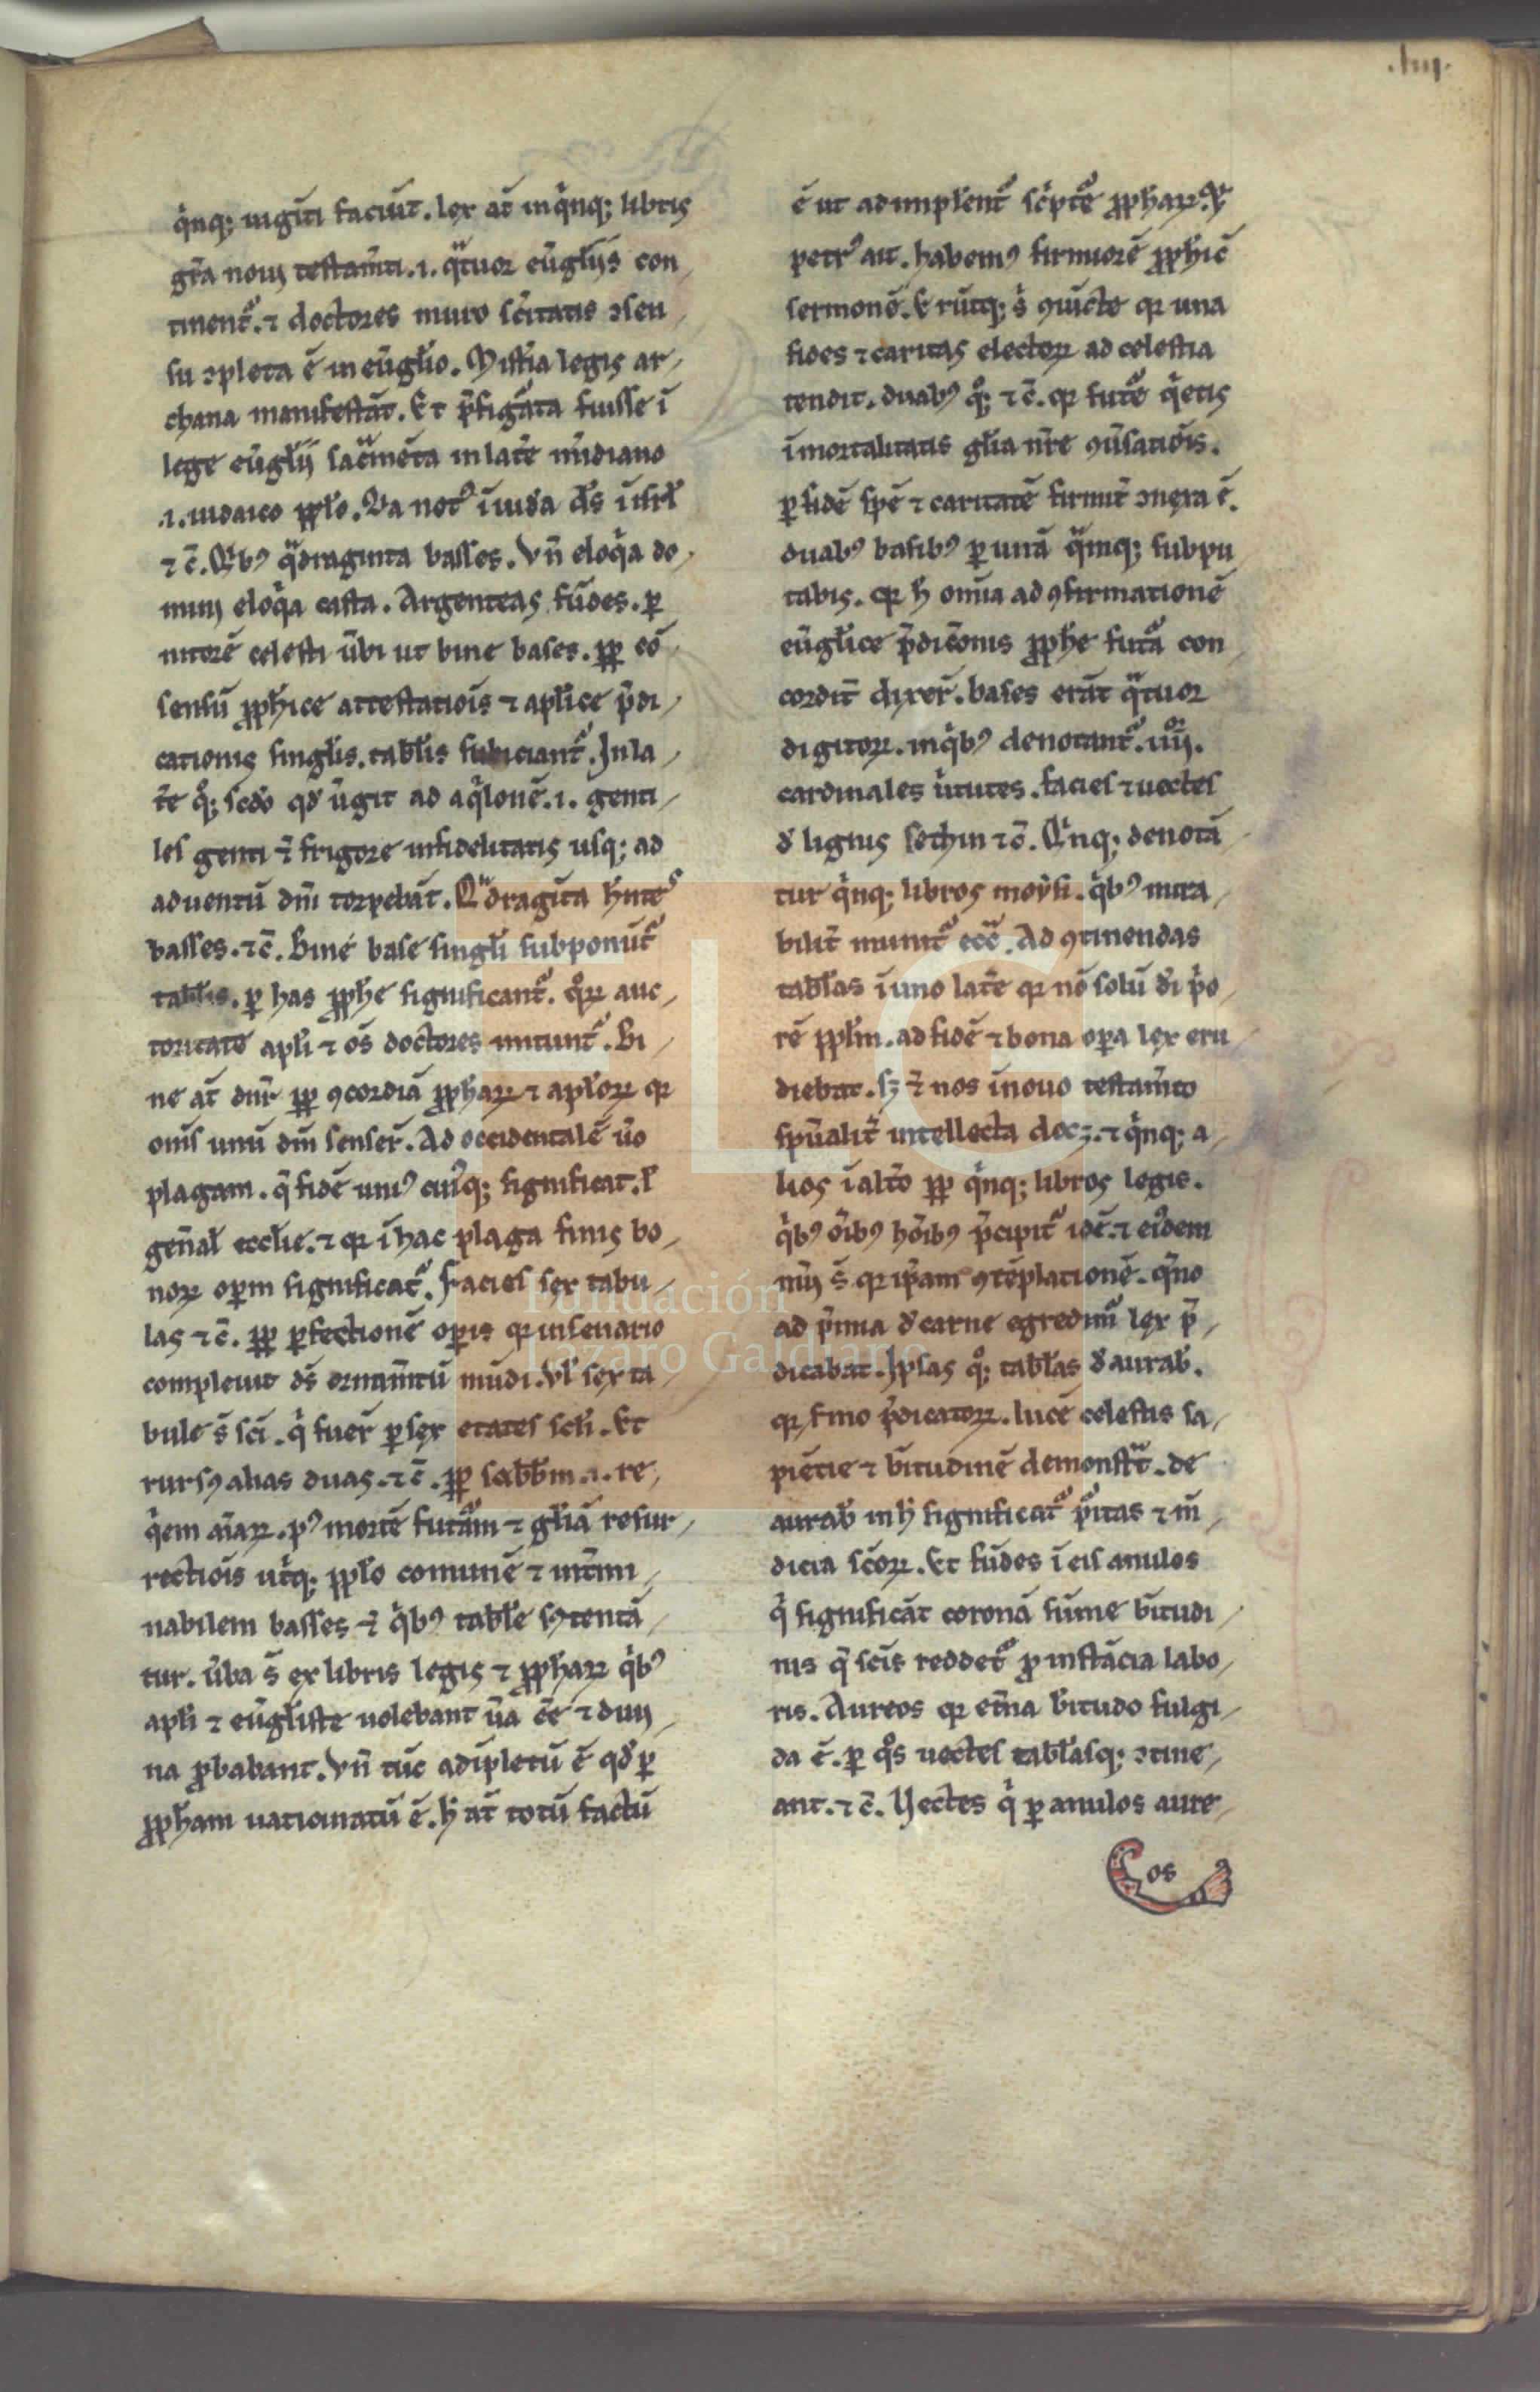 .liii.
q̇nq; uiginti faciūt. lex at̄ in q̇nq; libris
gr̄a noui testam̄ti .i. qͣtuor eūglīis con
tinentͬ. ⁊ doctores muro sc̄itatis ɔsen
su ɔpleta ē in eūglio. Misťia legis ar
chana manifestāt. Et p̄figͣata fuisse ī
lege eūglīi sacͣmēta in lať m̄idiano
.i. iudaico pplo. Va notͬ i iudͣa dˢ i isrł
⁊ c̄. Qͥbꝰ qͣdraginta basses. Vn̄ eloq̇a do
mini eloq̇a casta. Argenteas fūdes. ꝑ
nitorē celesti ūbi ut bine bases. ꝓp cō
sensū ꝓphice attestatiōis ⁊ aplice p̄di
cationis singlis tablis subiciantͬ. In la
te qͦ; scdo qd̓ ūgit ad aq̇lonē .i. genti
les genti ⁊̄ frigore infidelitatis usq; ad
aduentū dn̄i torpebāt. Qͣdragīta hn̄tes
basses. ⁊ c̄. Bine base singłi subponūtͬ
tablis. ꝑ has ꝓphe significantͬ. qͦꝝ auc
toritate apli ⁊ oēs doctores nitūtͬ. Bi
ne at̄ dnr̄ ꝓp ꝯcordiā ꝓphaꝝ ⁊ aploꝝ qr
om̄s unū dn̄i senseŕ. Ad occidentalē ūo
plagam. q̄ fidē uniꝰ cuiꝰq; significat. ł
gen̄al ecclie. ⁊ qr i hac plaga finis bo
noꝝ oꝑm significatͬ. Facies sex tabu
las ⁊ c̄. ꝓp ꝑfectionē oꝑis qr in senario
compleuit dˢ ornam̄tū mūdi. Vl sex ta
bule s̄ sci. q̇ fueŕ ꝑ sex etates scłi. Et
rursꝰ alias duas. ⁊ c̄. ꝓp sabb̄m .i. re
q̇em aīaꝝ. pꝰ mortē futurͣm ⁊ głiā resur
rectiōis utͥq; pplo comunē ⁊ int̄mi
nabilem basses ⁊̄ q̇bꝰ table sꝰtentā
tur. ūba s̄ ex libris legis ⁊ ꝓphaꝝ q̇bꝰ
apli ⁊ eūgliste uolebant ūa eē ⁊ diui
na ꝓbabant. Vn̄ tūc adīpletū ē qd̓ ꝑ
ꝓpham uaticinatū ē. h̓ at̄ totū factū
ē ut adimplentͬ sc̓ptē ꝓphaꝝ.
petrꝰ ait. habemꝰ firmiorē ꝓphic̄
sermonē. Vtrūq; s̓ ꝯiūcte qr una
fides ⁊ caritas electoꝝ ad celestia
tendit. duabꝰ qͦ; ⁊ c̄. qr futͬe q̇etis
īmortalitatis głia nr̄e ꝯūsatiōis.
ꝑ fidē spē ⁊ caritatē firmiť ɔnexa ē.
duabꝰ basibꝰ ꝑ unā qͣmq; subpu
tabis. qr h̓ omīa ad ꝯfirmationē
eūglice p̄dicōnis ꝓphe futͣa con
cordiť dixeŕ. bases erāt qͣtuor
digitoꝝ. in q̇bꝰ denotantͬ .iiii.
cardinales ūtutes. facies ⁊ uectes
d̓ lignis sethin ⁊ c̄. Qͥnq; denotā
tur q̇nq; libros moysi. q̇bꝰ mira
biliť munitͬ ecc̄a. Ad ꝯtinendas
tablas i uno lať qr nō solū dī p̓o
rē pplm. ad fidē ⁊ bona oꝑa lex eru
diebat. sꝫ ⁊̄ nos i nouo testam̄to
sp̄ualiť intellecta docꝫ. ⁊ q̇nq; a
lios i alťo ꝓp q̇nq; libros legis.
q̇bꝰ oībꝰ hōibꝰ p̄cipitͬ idē. ⁊ eiꝰdem
nu̓i s̄ qr ipsam ꝯtēplationē. q̄no
ad p̄mia d̓ carne egredimͬ lex p̄
dicabat. Ipsas qͦ; tablas d̓aurab̓.
qr sermo p̄dicatoꝝ. lucē celestis sa
piētie ⁊ b̄itudinē demonstͣt. de
aurab̓ in h̓ significatͬ pͥtas ⁊ m̄
dicia scōꝝ. Et fūdes i eis anulos
q̇ significāt coronā sūme b̄itudi
nis q̄ scīs reddetͬ ꝓ instācia labo
ris. Aureos qr et̄na b̄itudo fulgi
da ē. ꝑ qͦs uectes tablasq; ɔtine
ant. ⁊ c̄. Vectes q̇ ꝑ anulos aure
os
FLG
Fundación
Lázaro Galdiano